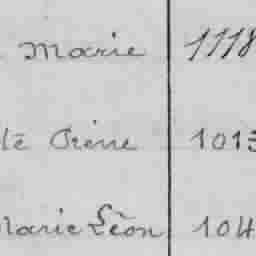 Marie 1118
té Pierre 1013
Marie Léon 104